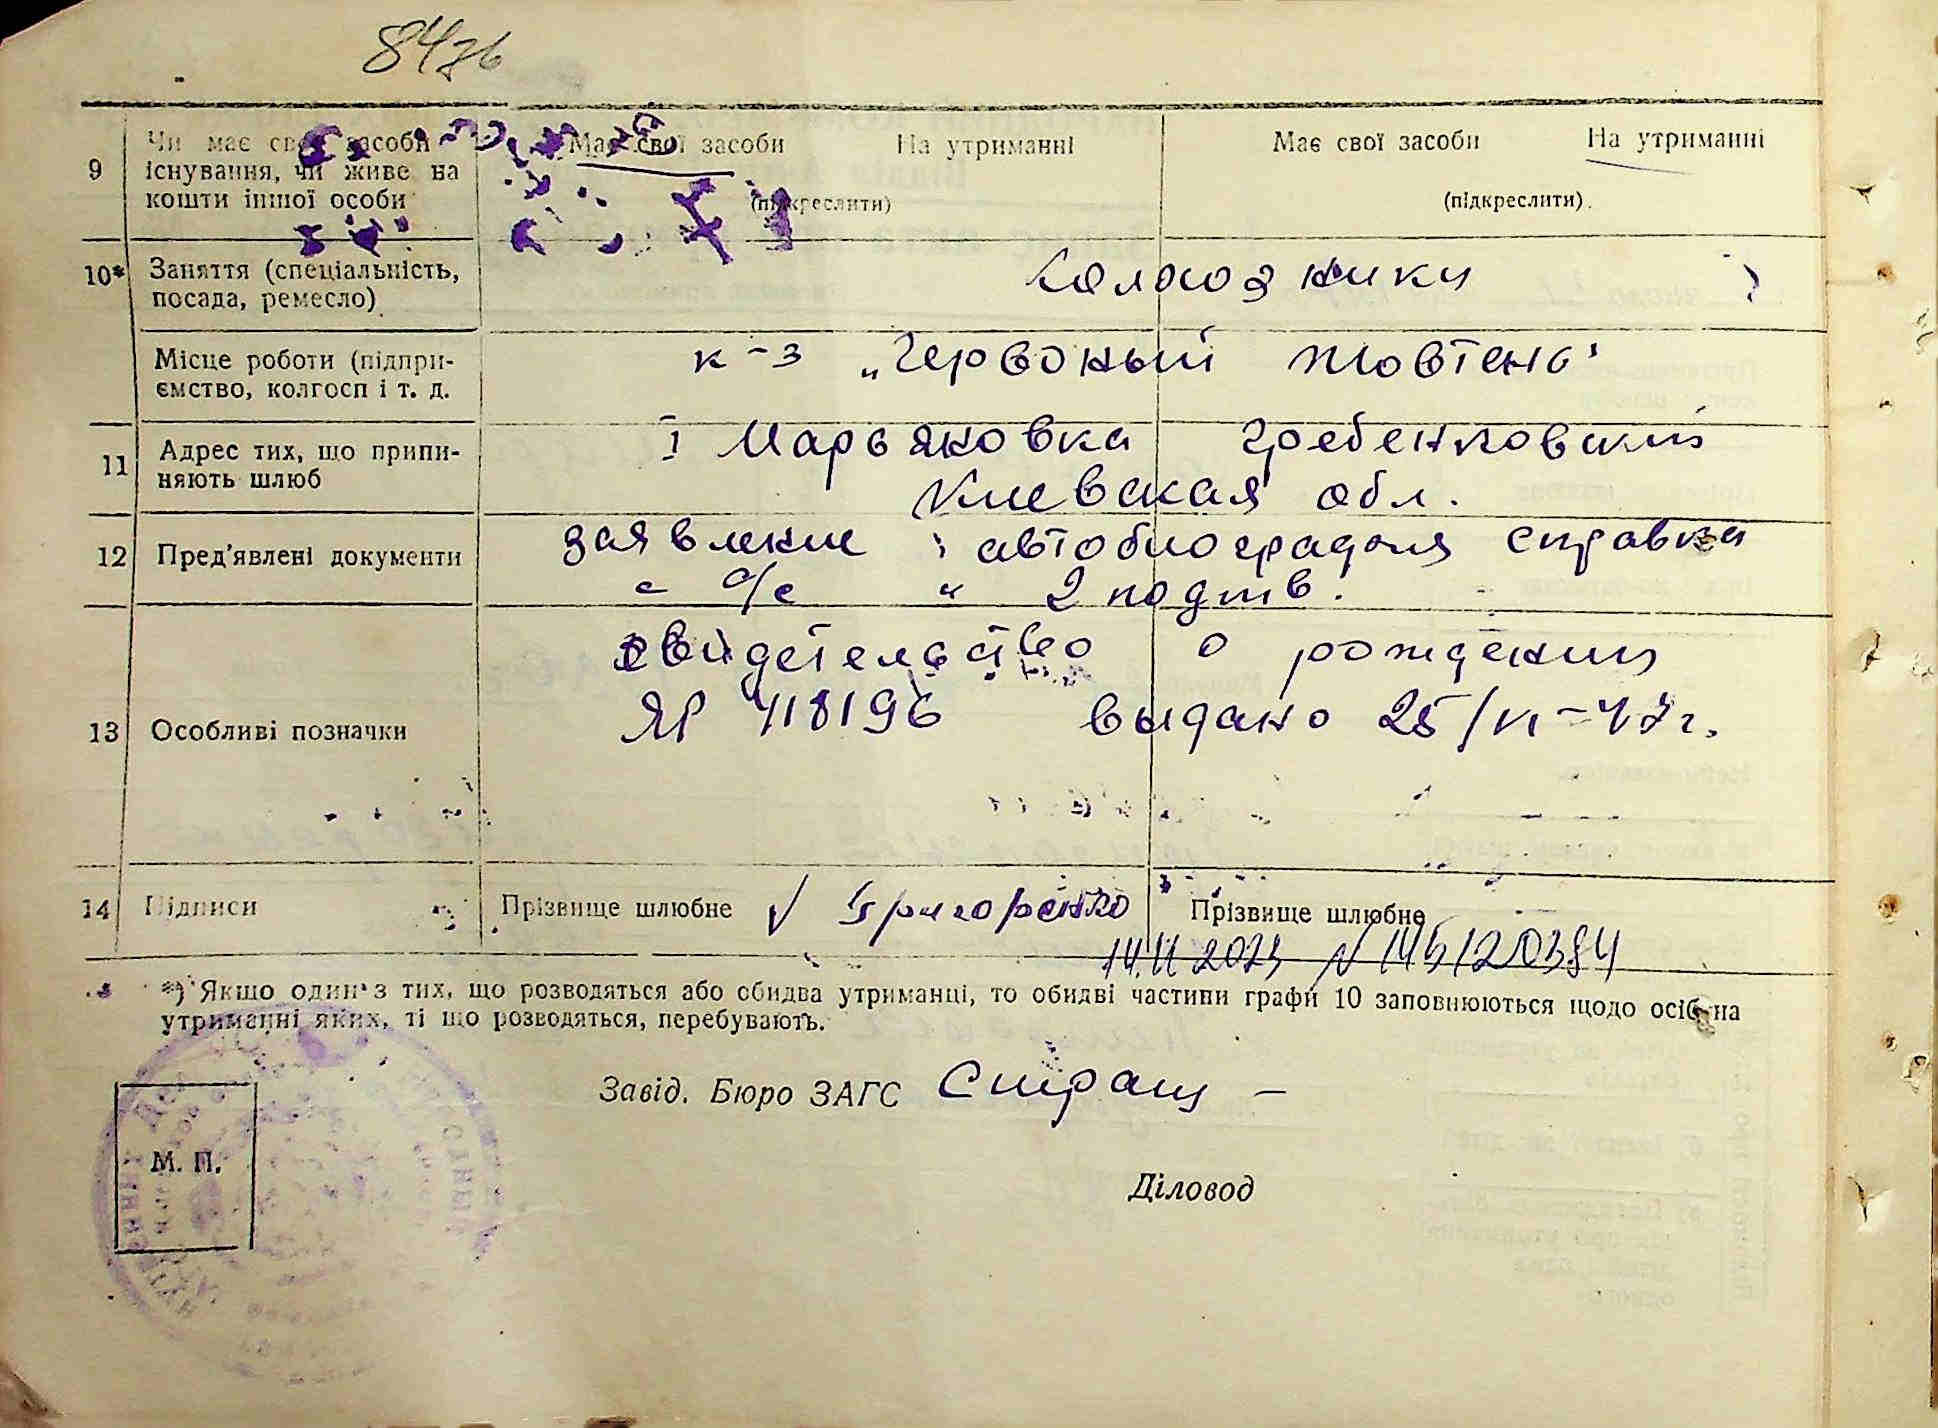 9 Чи має свої засоби існування, чи живе на кошти іншої особи
Має свої засоби На утриманні
(підкреслити)
Має свої засоби На утриманні
(підкреслити).
10* Заняття (спеціальність, посада, ремесло)
Колхозники
Місце роботи (підпри-
ємство, колгосп і т. д.
к-з „Червоный жовтень"
11 Адрес тих, що припи-
няють шлюб
Марьяновка Гребенковский
Киевская обл.
12 Пред'явлені документи
заявление автобиография справка
с с/с 2 подтв.
13 Особливі позначки
свидетельство о рождении
ЯР 418196 выдано 25/VI-47г.
14 Підписи
Прізвище шлюбне Григоренко
Прізвище шлюбне
14.11.2023 N 145120384
*) Якщо один з тих, що розводяться або обидва утриманці, то обидві частини графи 10 заповнюються щодо осіб, на
утриманні яких, ті що розводяться, перебувають.
Завід. Бюро ЗАГС
М. П.
Діловод